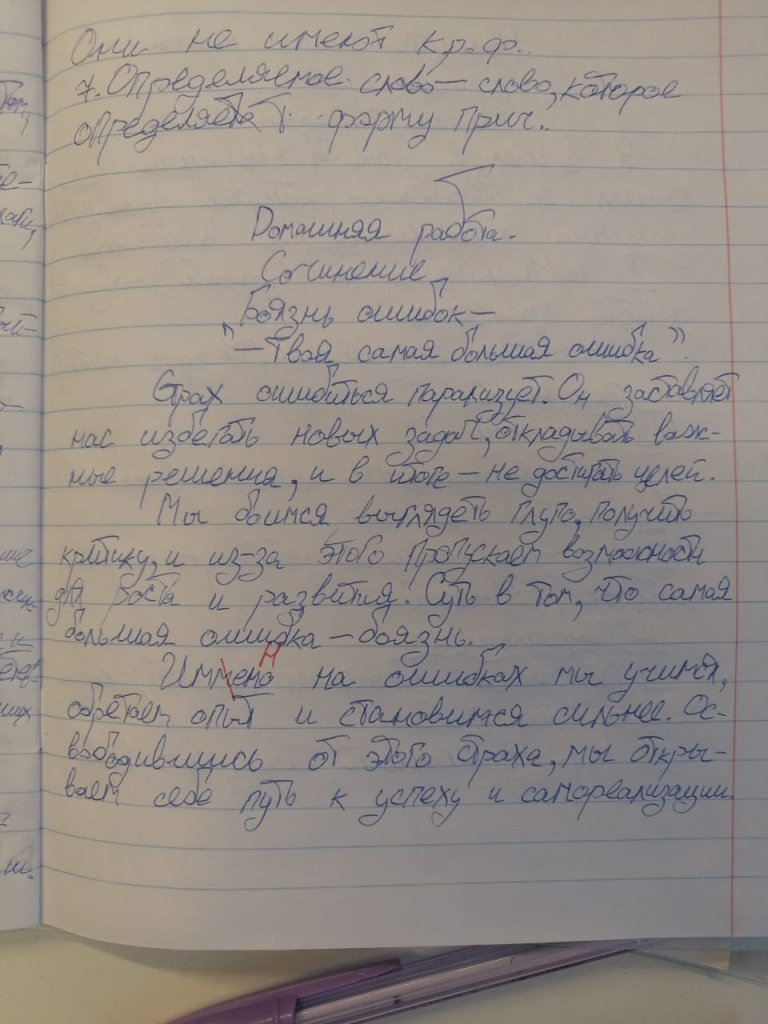 Они не имеют кр.ф.
7. Определяемое слово — слово, которое
определяет форму прич.
Домашняя работа.
Сочинение
„Боязнь ошибок —
— твоя самая большая ошибка”.
Страх ошибиться парализует. Он заставляет
нас избегать новых задач, откладывать важ-
ные решения, и в итоге — не достигать целей.
Мы боимся выглядеть глупо, получить
критику, и из-за этого пропускаем возможности
для роста и развития. Суть в том, что самая
большая ошибка — боязнь.
н
Иммено на ошибках мы учимся,
обретаем опыт и становимся сильнее. Ос-
вободившись от этого страха, мы откры-
ваем себе путь к успеху и самореализации.